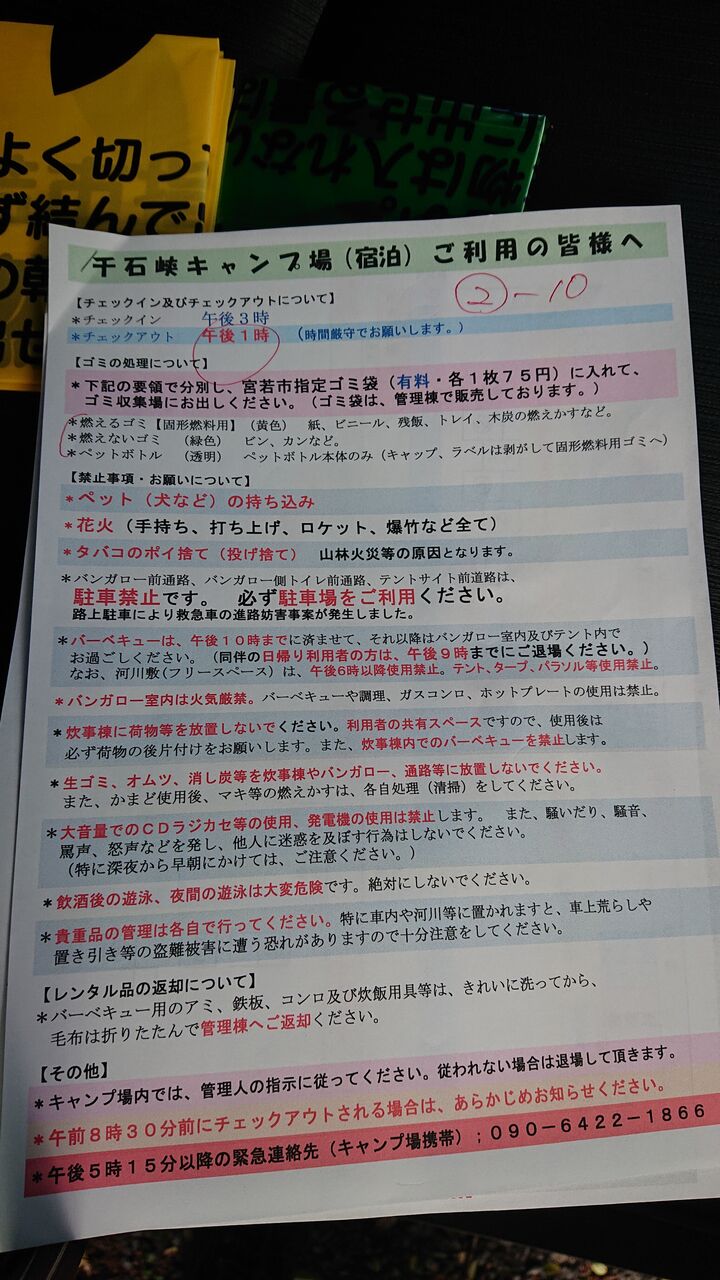 よく切っ
ず結んで
の朝
出せ
物は入れない
に出せる量は
千石峡キャンプ場（宿泊）ご利用の皆様へ
②-10
【チェックイン及びチェックアウトについて】
＊チェックイン 午後３時
＊チェックアウト 午後１時 （時間厳守でお願いします。）
【ゴミの処理について】
＊下記の要領で分別し、宮若市指定ゴミ袋（有料・各１枚７５円）に入れて、
ゴミ収集場にお出しください。（ゴミ袋は、管理棟で販売しております。）
＊燃えるゴミ【固形燃料用】（黄色） 紙、ビニール、残飯、トレイ、木炭の燃えかすなど。
＊燃えないゴミ （緑色） ビン、カンなど。
＊ペットボトル （透明） ペットボトル本体のみ（キャップ、ラベルは剥がして固形燃料用ゴミへ）
【禁止事項・お願いについて】
＊ペット（犬など）の持ち込み
＊花火（手持ち、打ち上げ、ロケット、爆竹など全て）
＊タバコのポイ捨て（投げ捨て） 山林火災等の原因となります。
＊バンガロー前通路、バンガロー側トイレ前通路、テントサイト前道路は、
駐車禁止です。 必ず駐車場をご利用ください。
路上駐車により救急車の進路妨害事案が発生しました。
＊バーベキューは、午後１０時までに済ませて、それ以降はバンガロー室内及びテント内で
お過ごしください。（同伴の日帰り利用者の方は、午後９時までにご退場ください。）
なお、河川敷(フリースペース）は、午後6時以降使用禁止。テント、タープ、パラソル等使用禁止。
＊バンガロー室内は火気厳禁。バーベキューや調理、ガスコンロ、ホットプレートの使用は禁止。
＊炊事棟に荷物等を放置しないでください。利用者の共有スペースですので、使用後は
必ず荷物の後片付けをお願いします。また、炊事棟内でのバーベキューを禁止します。
＊生ゴミ、オムツ、消し炭等を炊事棟やバンガロー、通路等に放置しないでください。
また、かまど使用後、マキ等の燃えかすは、各自処理（清掃）をしてください。
＊大音量でのＣＤラジカセ等の使用、発電機の使用は禁止します。 また、騒いだり、騒音、
罵声、怒声などを発し、他人に迷惑を及ぼす行為はしないでください。
（特に深夜から早朝にかけては、ご注意ください。）
＊飲酒後の遊泳、夜間の遊泳は大変危険です。絶対にしないでください。
＊貴重品の管理は各自で行ってください。特に車内や河川等に置かれますと、車上荒らしや
置き引き等の盗難被害に遭う恐れがありますので十分注意をしてください。
【レンタル品の返却について】
＊バーベキュー用のアミ、鉄板、コンロ及び炊飯用具等は、きれいに洗ってから、
毛布は折りたたんで管理棟へご返却ください。
【その他】
＊キャンプ場内では、管理人の指示に従ってください。従われない場合は退場して頂きます。
＊午前８時３０分前にチェックアウトされる場合は、あらかじめお知らせください。
＊午後５時１５分以降の緊急連絡先（キャンプ場携帯）；０９０－６４２２－１８６６